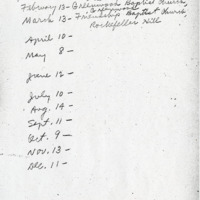 February 13 - Greenwood Baptist Church,
March 13 - Friendship Baptist Church,
Rockefeller Hill
April 10 -
May 8 -
June 12 -
July 10 -
Aug. 14 -
Sept. 11 -
Oct. 9 -
Nov. 13 -
Dec. 11 -